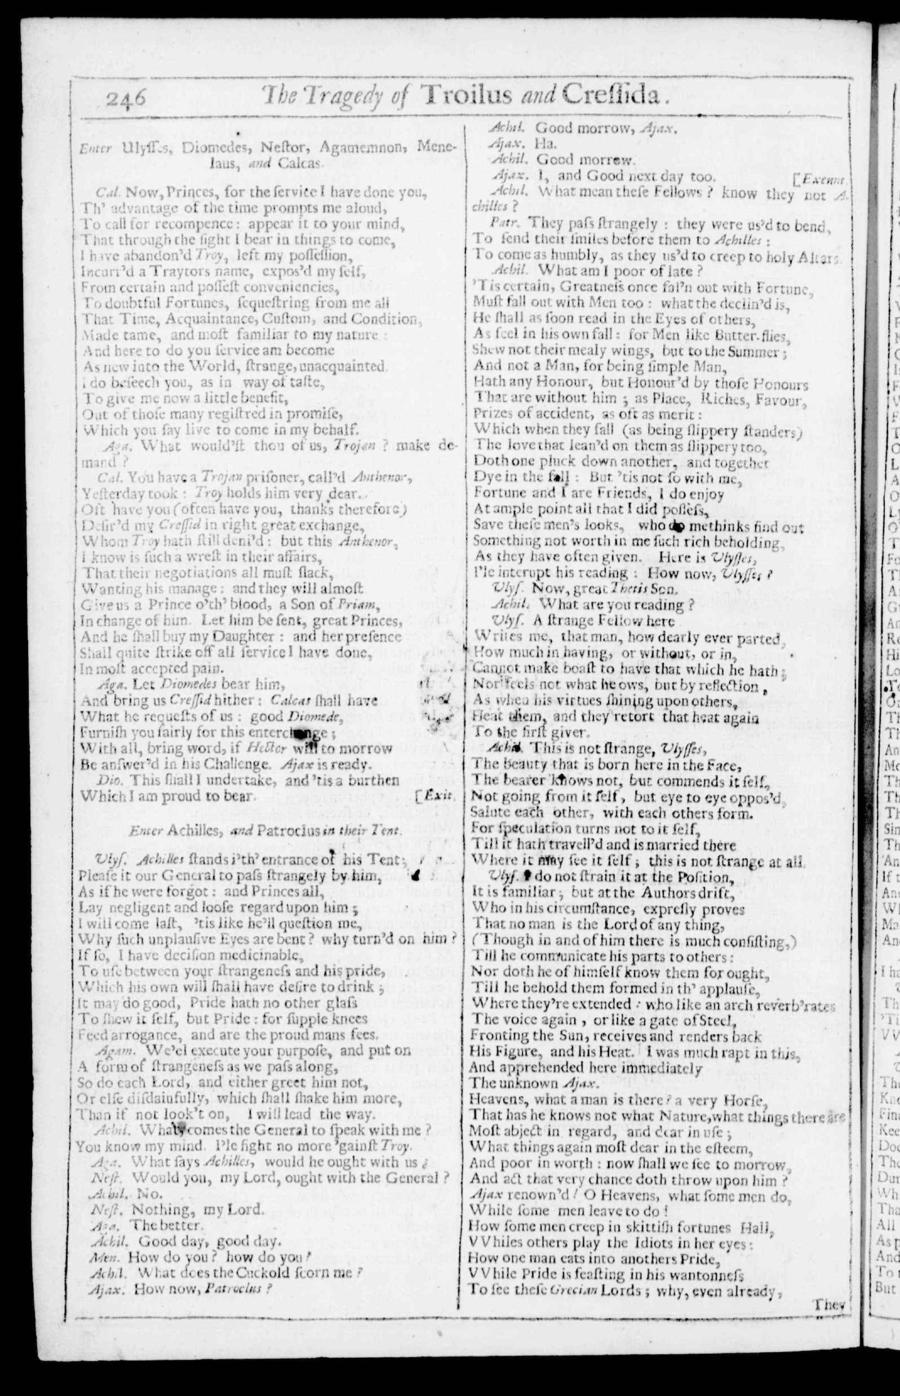 246 The Tragedy of Troilus and Creſſida.
Enter Ulyſſes, Diomedes, Neſtor, Agamemnon, Mene-
laus, and Calcas.
Cal. Now, Princes, for the ſervice I have done you,
Th' advantage of the time prompts me aloud,
To call for recompence: appear it to your mind,
That through the ſight I bear in things to come,
I have abandon'd Troy, left my poſſeſſion,
Incurr'd a Traytors name, expos'd my ſelf,
From certain and poſſeſt conveniencies,
To doubtful Fortunes, ſequeſtring from me all
That Time, Acquaintance, Cuſtom, and Condition,
Made tame, and moſt familiar to my nature:
And here to do you ſervice am become
As new into the World, ſtrange, unacquainted.
I do beſeech you, as in way of taſte,
To give me now a little benefit,
Out of thoſe many regiſtred in promiſe,
Which you ſay live to come in my behalf.
Aga. What would'ſt thou of us, Trojan? make de-
mand?
Cal. You have a Trojan priſoner, call'd Anthenor,
Yeſterday took: Troy holds him very dear.
Oft have you (often have you, thanks therefore)
Deſir'd my Creſſid in right great exchange,
Whom Troy hath ſtill deni'd: but this Anthenor,
I know is ſuch a wreſt in their affairs,
That their negotiations all muſt ſlack,
Wanting his manage: and they will almoſt
Give us a Prince o'th' blood, a Son of Priam,
In change of him. Let him be ſent, great Princes,
And he ſhall buy my Daughter: and her preſence
Shall quite ſtrike off all ſervice I have done,
In moſt accepted pain.
Aga. Let Diomedes bear him,
And bring us Creſſid hither: Calcas ſhall have
What he requeſts of us: good Diomede,
Furniſh you fairly for this enterchange;
With all, bring word, if Hector will to morrow
Be anſwer'd in his Challenge. Ajax is ready.
Dio. This ſhall I undertake, and 'tis a burthen
Which I am proud to bear. [Exit.
Enter Achilles, and Patroclus in their Tent.
Ulyſ. Achilles ſtands i'th' entrance of his Tent;
Pleaſe it our General to paſs ſtrangely by him,
As if he were forgot: and Princes all,
Lay negligent and looſe regard upon him;
I will come laſt, 'tis like he'll queſtion me,
Why ſuch unplauſive Eyes are bent? why turn'd on him?
If ſo, I have deciſion medicinable,
To uſe between your ſtrangeneſs and his pride,
Which his own will ſhall have deſire to drink;
It may do good, Pride hath no other glaſs
To ſhew it ſelf, but Pride: for ſupple knees
Feed arrogance, and are the proud mans fees.
Agam. We'el execute your purpoſe, and put on
A form of ſtrangeneſs as we paſs along,
So do each Lord, and either greet him not,
Or elſe diſdainfully, which ſhall ſhake him more,
Than if not look't on, I will lead the way.
Achil. What comes the General to ſpeak with me?
You know my mind. I'le fight no more 'gainſt Troy.
Aga. What ſays Achilles, would he ought with us?
Neſt. Would you, my Lord, ought with the General?
Achil. No.
Neſt. Nothing, my Lord.
Aga. The better.
Achil. Good day, good day.
Men. How do you? how do you?
Achil. What does the Cuckold ſcorn me?
Ajax. How now, Patroclus?
Achil. Good morrow, Ajax.
Ajax. Ha.
Achil. Good morrow.
Ajax. I, and Good next day too. [Exeunt.
Achil. What mean theſe Fellows? know they not A-
chilles?
Patr. They paſs ſtrangely: they were us'd to bend,
To ſend their ſmiles before them to Achilles:
To come as humbly, as they us'd to creep to holy Altars.
Achil. What am I poor of late?
'Tis certain, Greatneſs once fal'n out with Fortune,
Muſt fall out with Men too: what the declin'd is,
He ſhall as ſoon read in the Eyes of others,
As feel in his own fall: for Men like Butter-flies,
Shew not their mealy wings, but to the Summer;
And not a Man, for being ſimple Man,
Hath any Honour, but Honour'd by thoſe Honours
That are without him; as Place, Riches, Favour,
Prizes of accident, as oft as merit:
Which when they fall (as being ſlippery ſtanders)
The love that lean'd on them as ſlippery too,
Doth one pluck down another, and together
Dye in the fall: But 'tis not ſo with me,
Fortune and I are Friends, I do enjoy
At ample point all that I did poſſeſs,
Save theſe men's looks, who do methinks find out
Something not worth in me ſuch rich beholding,
As they have often given. Here is Ulyſſes,
I'le interupt his reading: How now, Ulyſſes?
Ulyſ. Now, great Thetis Son.
Achil. What are you reading?
Ulyſ. A ſtrange Fellow here
Writes me, that man, how dearly ever parted,
How much in having, or without, or in,
Cannot make boaſt to have that which he hath;
Nor feels not what he ows, but by reflection,
As when his virtues ſhining upon others,
Heat them, and they retort that heat again
To the firſt giver.
Achil. This is not ſtrange, Ulyſſes,
The beauty that is born here in the Face,
The bearer knows not, but commends it ſelf,
Not going from it ſelf, but eye to eye oppos'd,
Salute each other, with each others form.
For ſpeculation turns not to it ſelf,
Till it hath travell'd and is married there
Where it may ſee it ſelf; this is not ſtrange at all.
Ulyſ. I do not ſtrain it at the Poſition,
It is familiar; but at the Authors drift,
Who in his circumſtance, expreſly proves
That no man is the Lord of any thing,
(Though in and of him there is much conſiſting,)
Till he communicate his parts to others:
Nor doth he of himſelf know them for ought,
Till he behold them formed in th' applauſe,
Where they're extended: who like an arch reverb'rates
The voice again, or like a gate of Steel,
Fronting the Sun, receives and renders back
His Figure, and his Heat. I was much rapt in this,
And apprehended here immediately
The unknown Ajax.
Heavens, what a man is there? a very Horſe,
That has he knows not what Nature, what things there are
Moſt abject in regard, and dear in uſe;
What things again moſt dear in the eſteem,
And poor in worth: now ſhall we ſee to morrow,
And act that very chance doth throw upon him?
Ajax renown'd! O Heavens, what ſome men do,
While ſome men leave to do!
How ſome men creep in skittiſh fortunes Hall,
VVhiles others play the Idiots in her eyes:
How one man eats into anothers Pride,
VVhile Pride is feaſting in his wantonneſs
To ſee theſe Grecian Lords; why, even already,
They